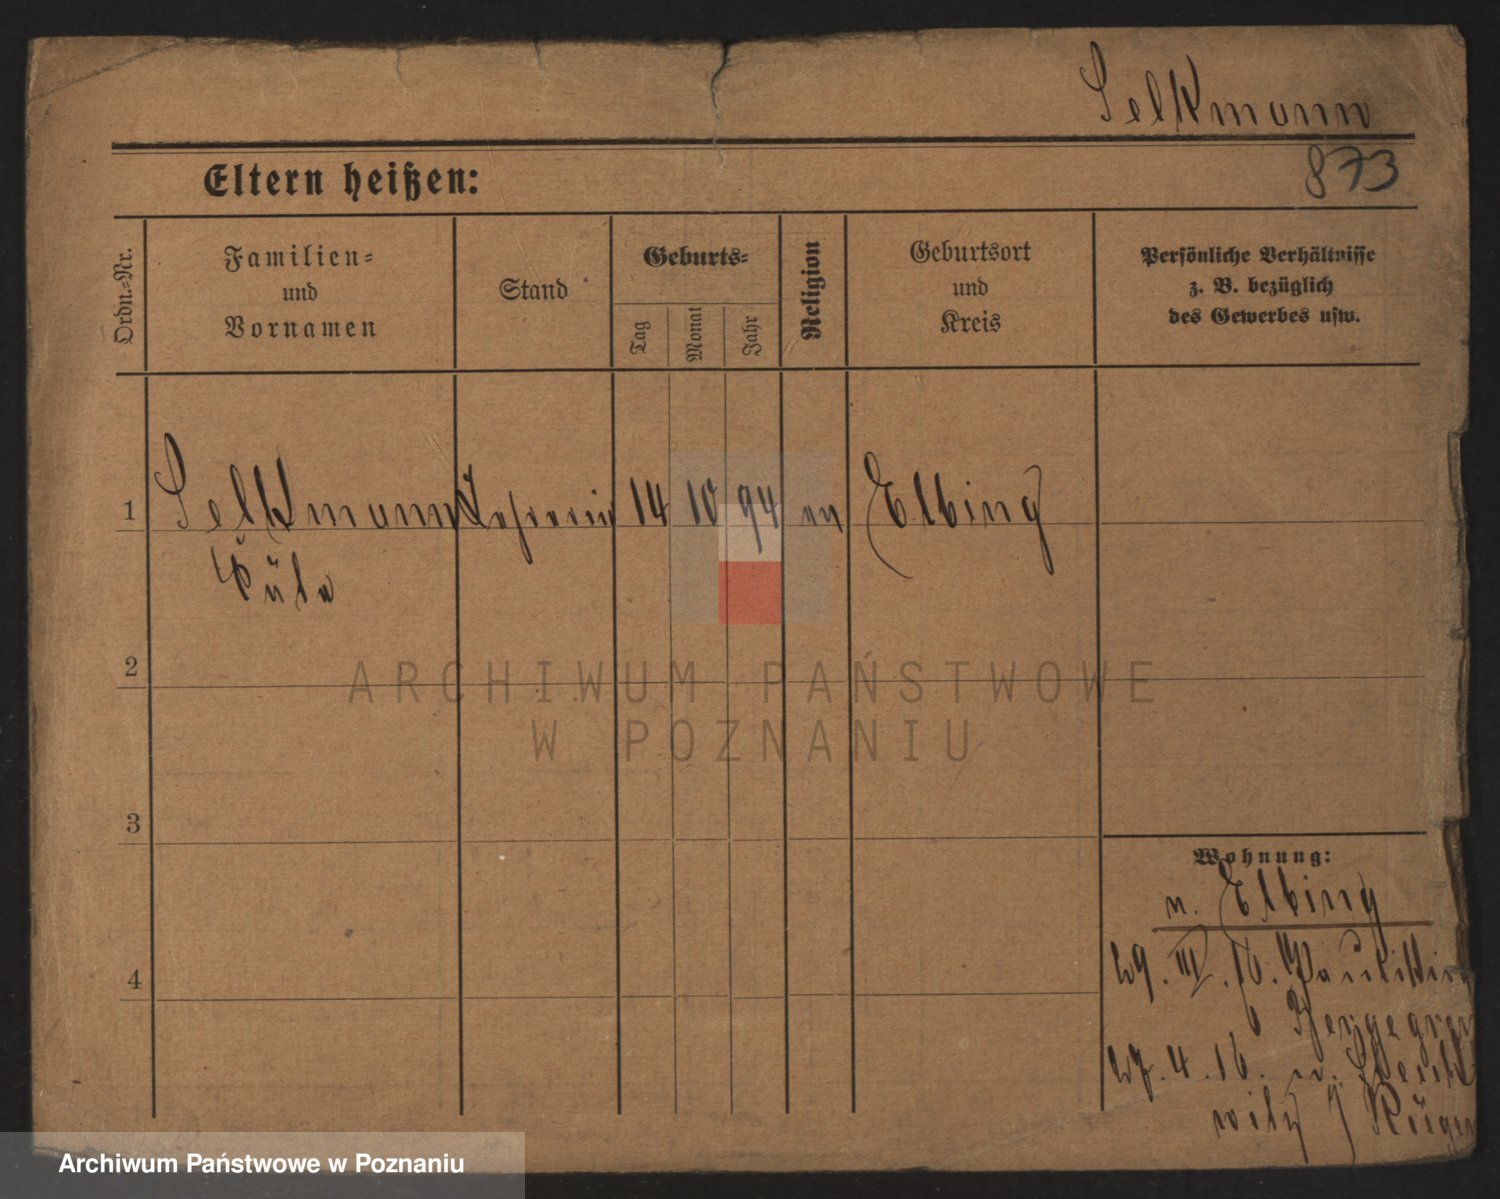 Selkmann
873
Eltern heißen:
Ordn.=Nr.
Familien=
und
Vornamen
Stand
Geburts=
Tag
Monat
Jahr
Religion
Geburtsort
und
Kreis
Persönliche Verhältnisse
z. B. bezüglich
des Gewerbes usw.
1 Selkmann Lehrerin 14 10 94 ev Elbing
2
3
4
Wohnung:
n. Elbing
III. 16.
4. 16.
ARCHIWUM PAŃSTWOWE
W POZNANIU
Archiwum Państwowe w Poznaniu